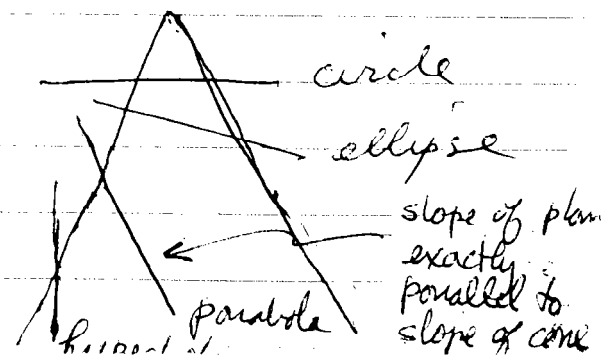 circle
ellipse
slope of plan
exactly
parallel to
slope of cone
parabola